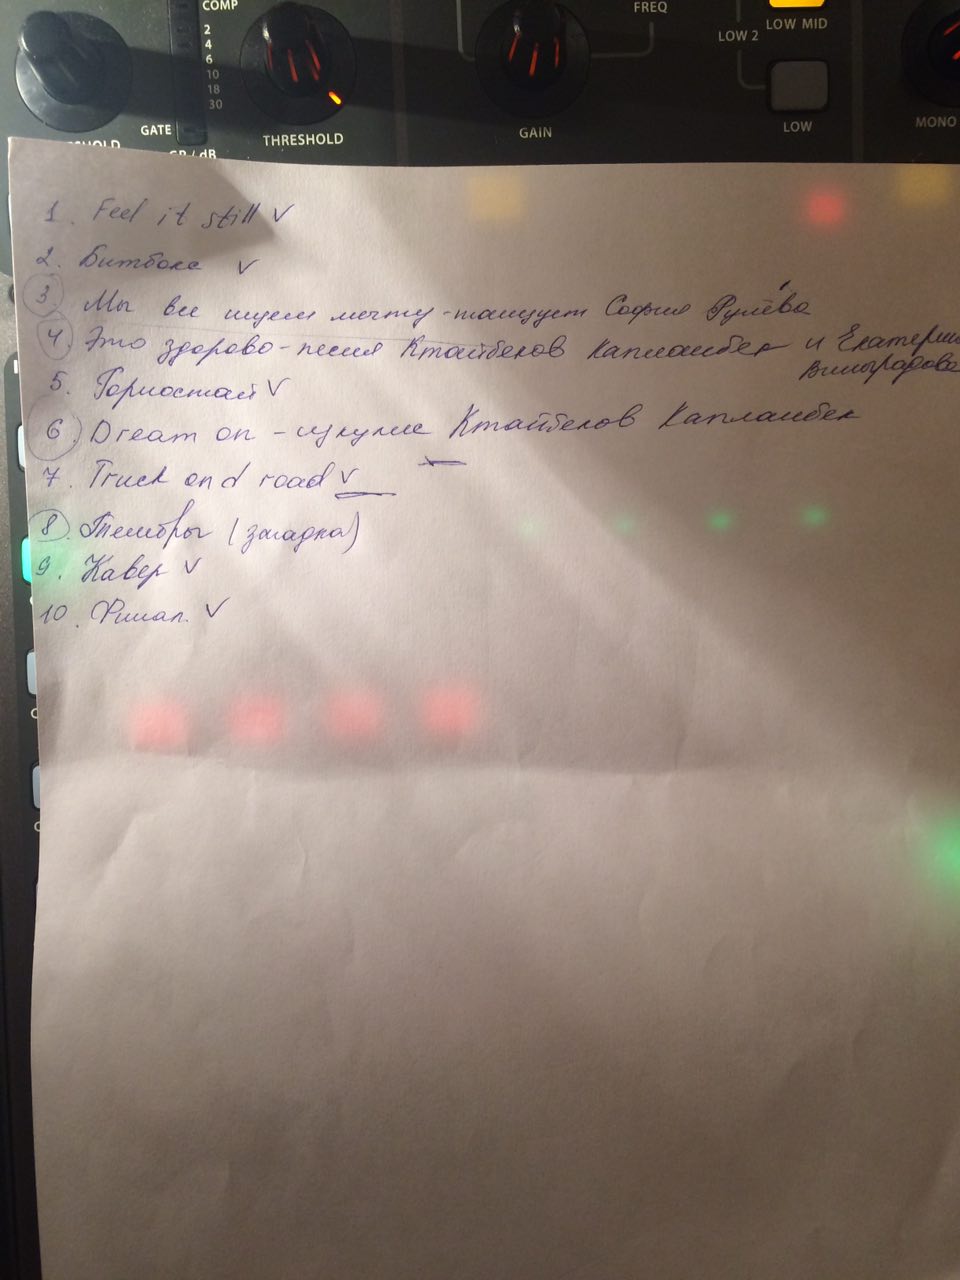 COMP
2
4
6
10
18
30
GATE
THRESHOLD
GAIN
FREQ
LOW 2
LOW MID
LOW
MONO
1. Feel it still V
2. Битбокс V
3. Мы все ищем мечту - танцует София Рулёва
4. Это здорово - песня Ктайбеков Капланбек и Екатерина
Виноградова
5. Горностай V
6. Dream on - Ктайбеков Капланбек
7. Truck and road V
8. Тембры (загадка)
9. Кавер V
10. Финал. V